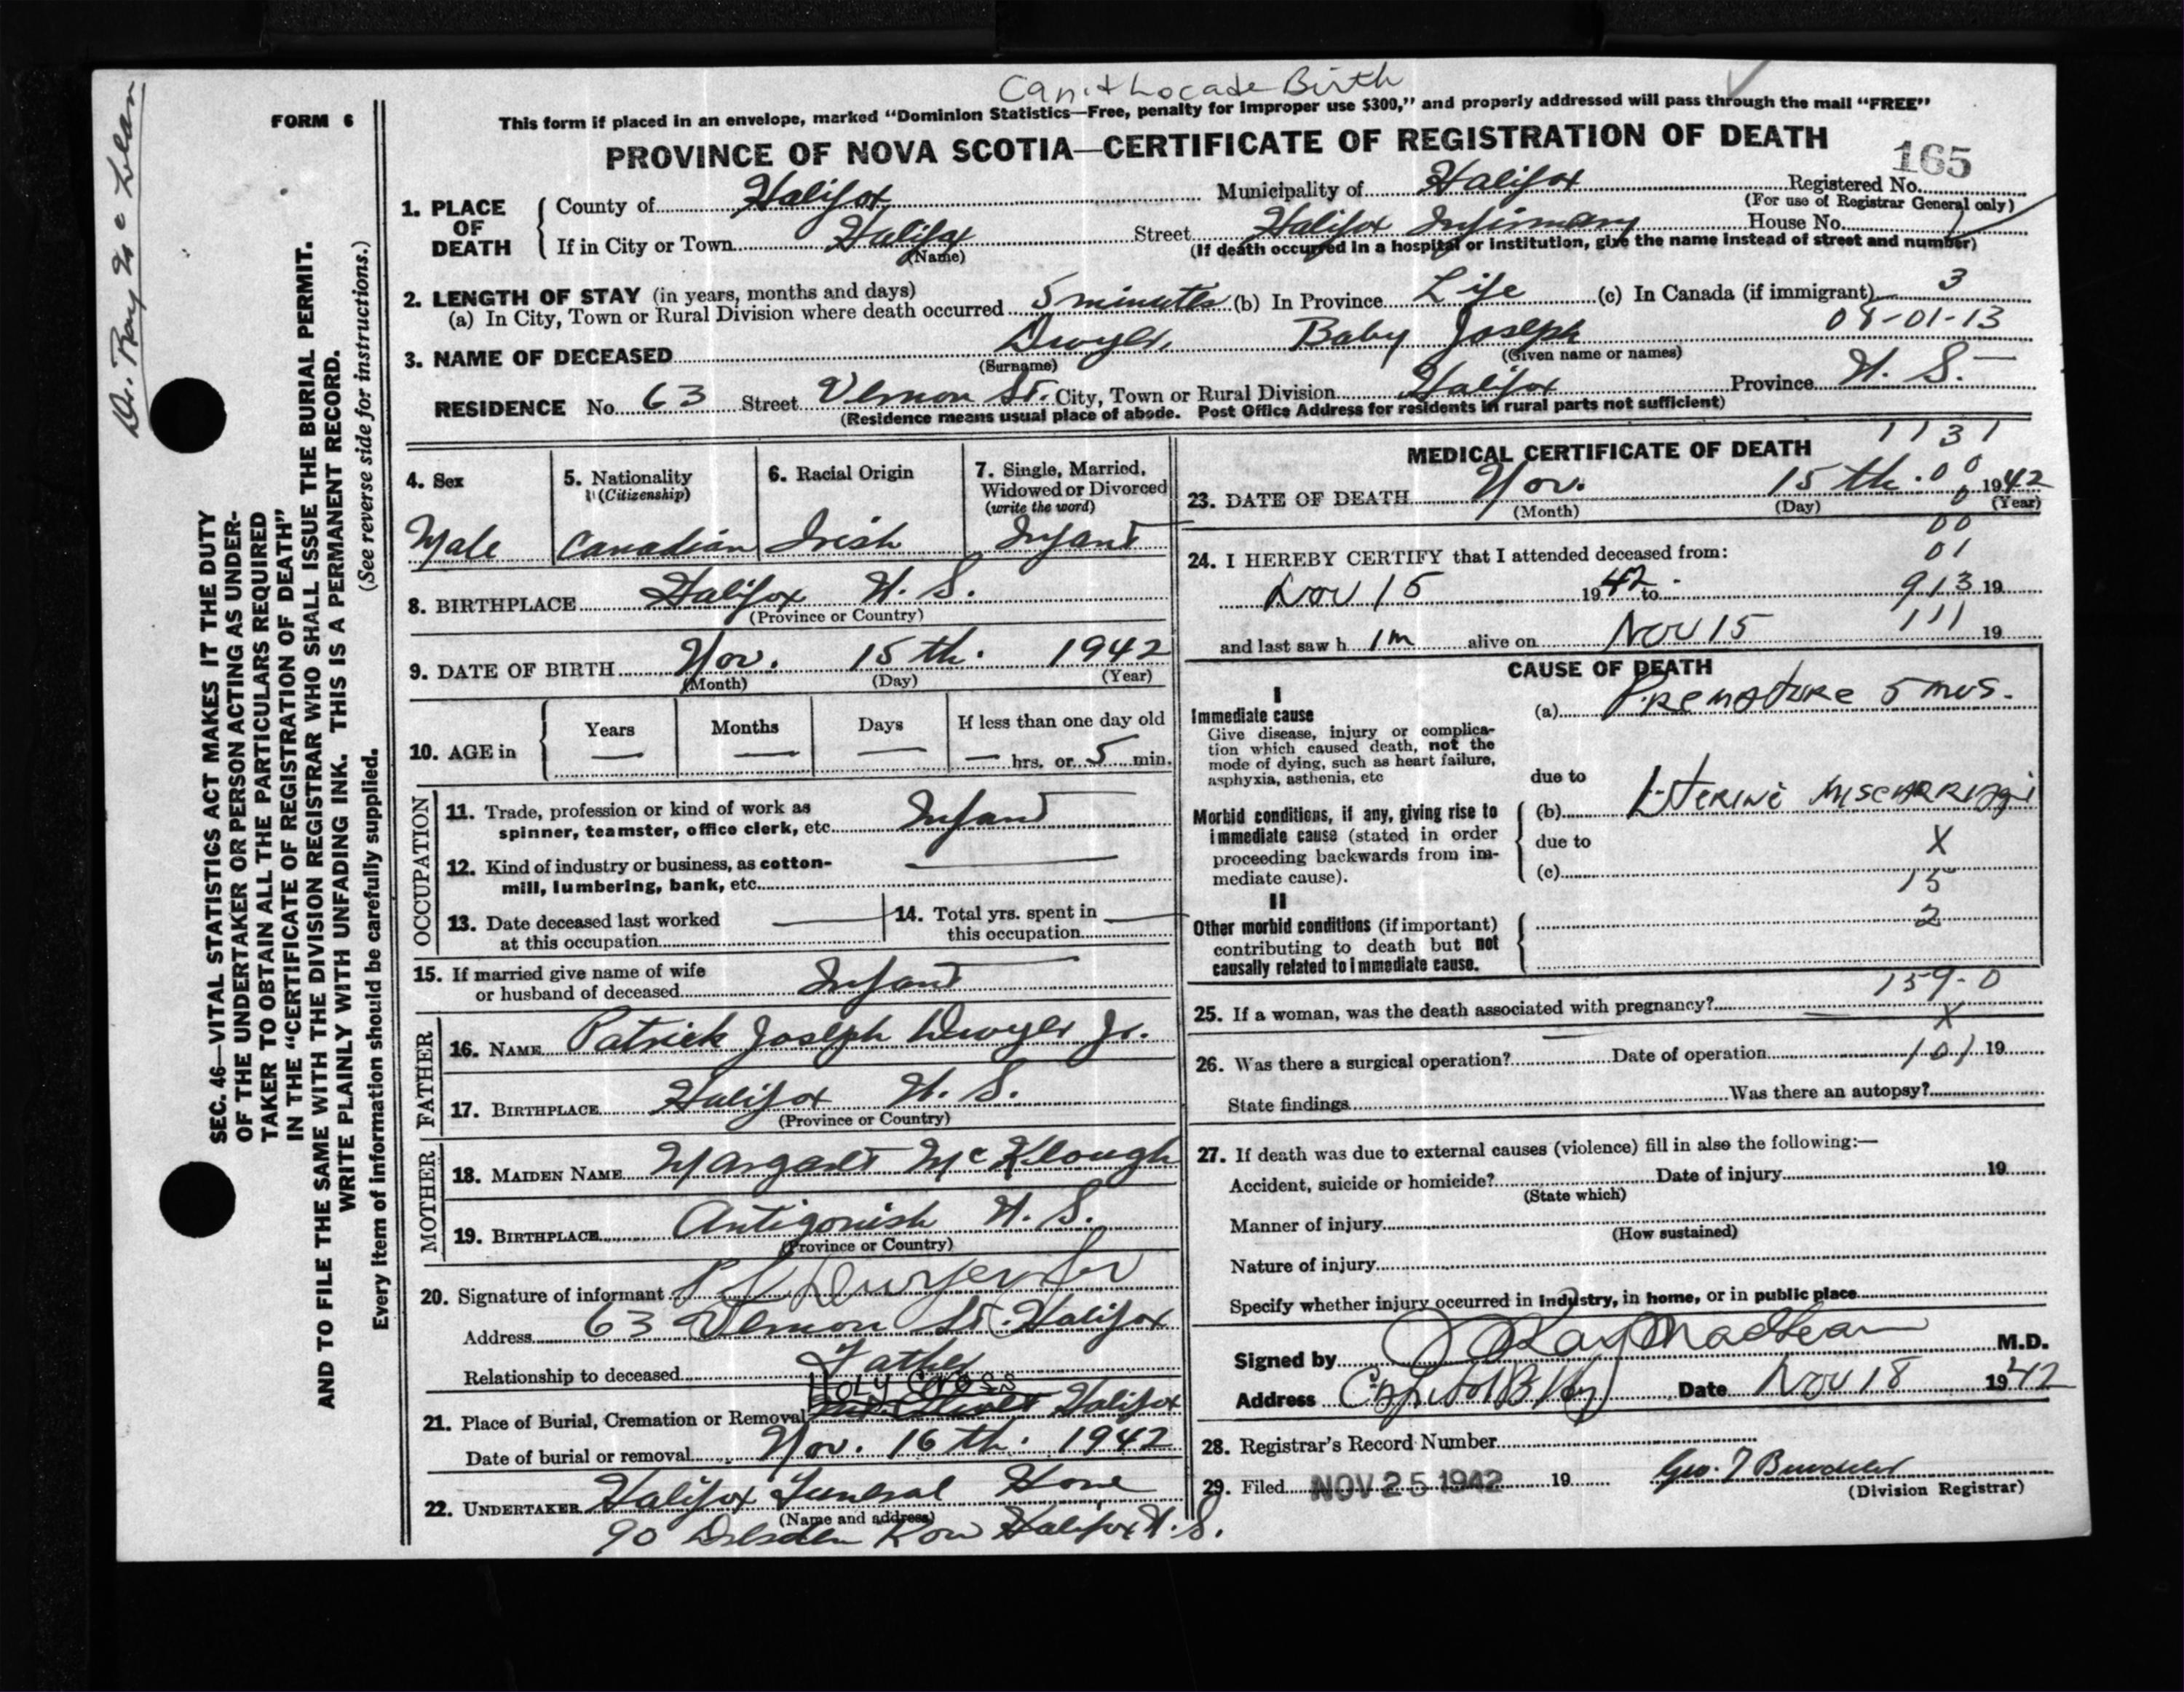 Can't Locate Birth
This form if placed in an envelope, marked “Dominion Statistics—Free, penalty for improper use $300,” and properly addressed will pass through the mail “FREE”
FORM 6
PROVINCE OF NOVA SCOTIA—CERTIFICATE OF REGISTRATION OF DEATH
165
1. PLACE OF DEATH
County of Halifax Municipality of Halifax Registered No.
(For use of Registrar General only)
If in City or Town Halifax Street Halifax Infirmary House No.
(Name) (If death occurred in a hospital or institution, give the name instead of street and number)
2. LENGTH OF STAY (in years, months and days)
(a) In City, Town or Rural Division where death occurred 5 minutes (b) In Province Life (c) In Canada (if immigrant) 3
08-01-13
3. NAME OF DECEASED Dwyer, Baby Joseph
(Surname) (Given name or names)
RESIDENCE No. 63 Street Vernon St. City, Town or Rural Division Halifax Province N. S.
(Residence means usual place of abode. Post Office Address for residents in rural parts not sufficient)
4. Sex
Male
5. Nationality
(Citizenship)
Canadian
6. Racial Origin
Irish
7. Single, Married, Widowed or Divorced
(write the word)
Infant
8. BIRTHPLACE Halifax N. S.
(Province or Country)
9. DATE OF BIRTH Nov. 15th. 1942
(Month) (Day) (Year)
10. AGE in Years Months Days If less than one day old
— — — — hrs. or 5 min.
OCCUPATION
11. Trade, profession or kind of work as
spinner, teamster, office clerk, etc. Infant
12. Kind of industry or business, as cotton-
mill, lumbering, bank, etc.
13. Date deceased last worked
at this occupation
14. Total yrs. spent in
this occupation
15. If married give name of wife
or husband of deceased Infant
FATHER
16. NAME Patrick Joseph Dwyer Jr.
17. BIRTHPLACE Halifax N. S.
(Province or Country)
MOTHER
18. MAIDEN NAME Margaret McKlough
19. BIRTHPLACE Antigonish N. S.
(Province or Country)
20. Signature of informant P J Dwyer Jr
Address 63 Vernon St. Halifax
Relationship to deceased Father
HOLY CROSS
21. Place of Burial, Cremation or Removal Halifax
Date of burial or removal Nov. 16th. 1942
22. UNDERTAKER Halifax Funeral Home
(Name and address)
90 Dresden Row Halifax N.S.
MEDICAL CERTIFICATE OF DEATH
1131
23. DATE OF DEATH Nov. 15th. 1942
(Month) (Day) (Year)
00
24. I HEREBY CERTIFY that I attended deceased from:
01
Nov 15 1942 to 913 19
and last saw h im alive on Nov 15 111 19
CAUSE OF DEATH
I
Immediate cause
Give disease, injury or complica-
tion which caused death, not the
mode of dying, such as heart failure,
asphyxia, asthenia, etc
(a) Premature 5 mos.
due to
Morbid conditions, if any, giving rise to
immediate cause (stated in order
proceeding backwards from im-
mediate cause).
(b) Uterine Miscarriage
due to
X
(c)
15
II
Other morbid conditions (if important)
contributing to death but not
causally related to immediate cause.
2
159-0
25. If a woman, was the death associated with pregnancy?
X
26. Was there a surgical operation? — Date of operation 101 19
State findings Was there an autopsy?
27. If death was due to external causes (violence) fill in also the following:—
Accident, suicide or homicide? Date of injury 19
(State which)
Manner of injury
(How sustained)
Nature of injury
Specify whether injury occurred in industry, in home, or in public place
Signed by J Ray MacLean M.D.
Address Capitol Bldg Date Nov 18 1942
28. Registrar's Record Number
29. Filed NOV 25 1942 19
(Division Registrar)
Dr. Ray McLean
SEC. 46—VITAL STATISTICS ACT MAKES IT THE DUTY
OF THE UNDERTAKER OR PERSON ACTING AS UNDER-
TAKER TO OBTAIN ALL THE PARTICULARS REQUIRED
IN THE “CERTIFICATE OF REGISTRATION OF DEATH”
AND TO FILE THE SAME WITH THE DIVISION REGISTRAR WHO SHALL ISSUE THE BURIAL PERMIT.
WRITE PLAINLY WITH UNFADING INK. THIS IS A PERMANENT RECORD.
(See reverse side for instructions.)
Every item of information should be carefully supplied.